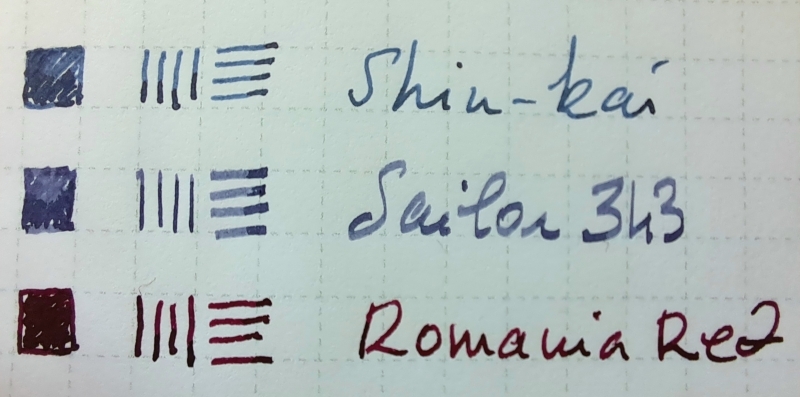 Shin-kai
Sailor 343
Romania Red